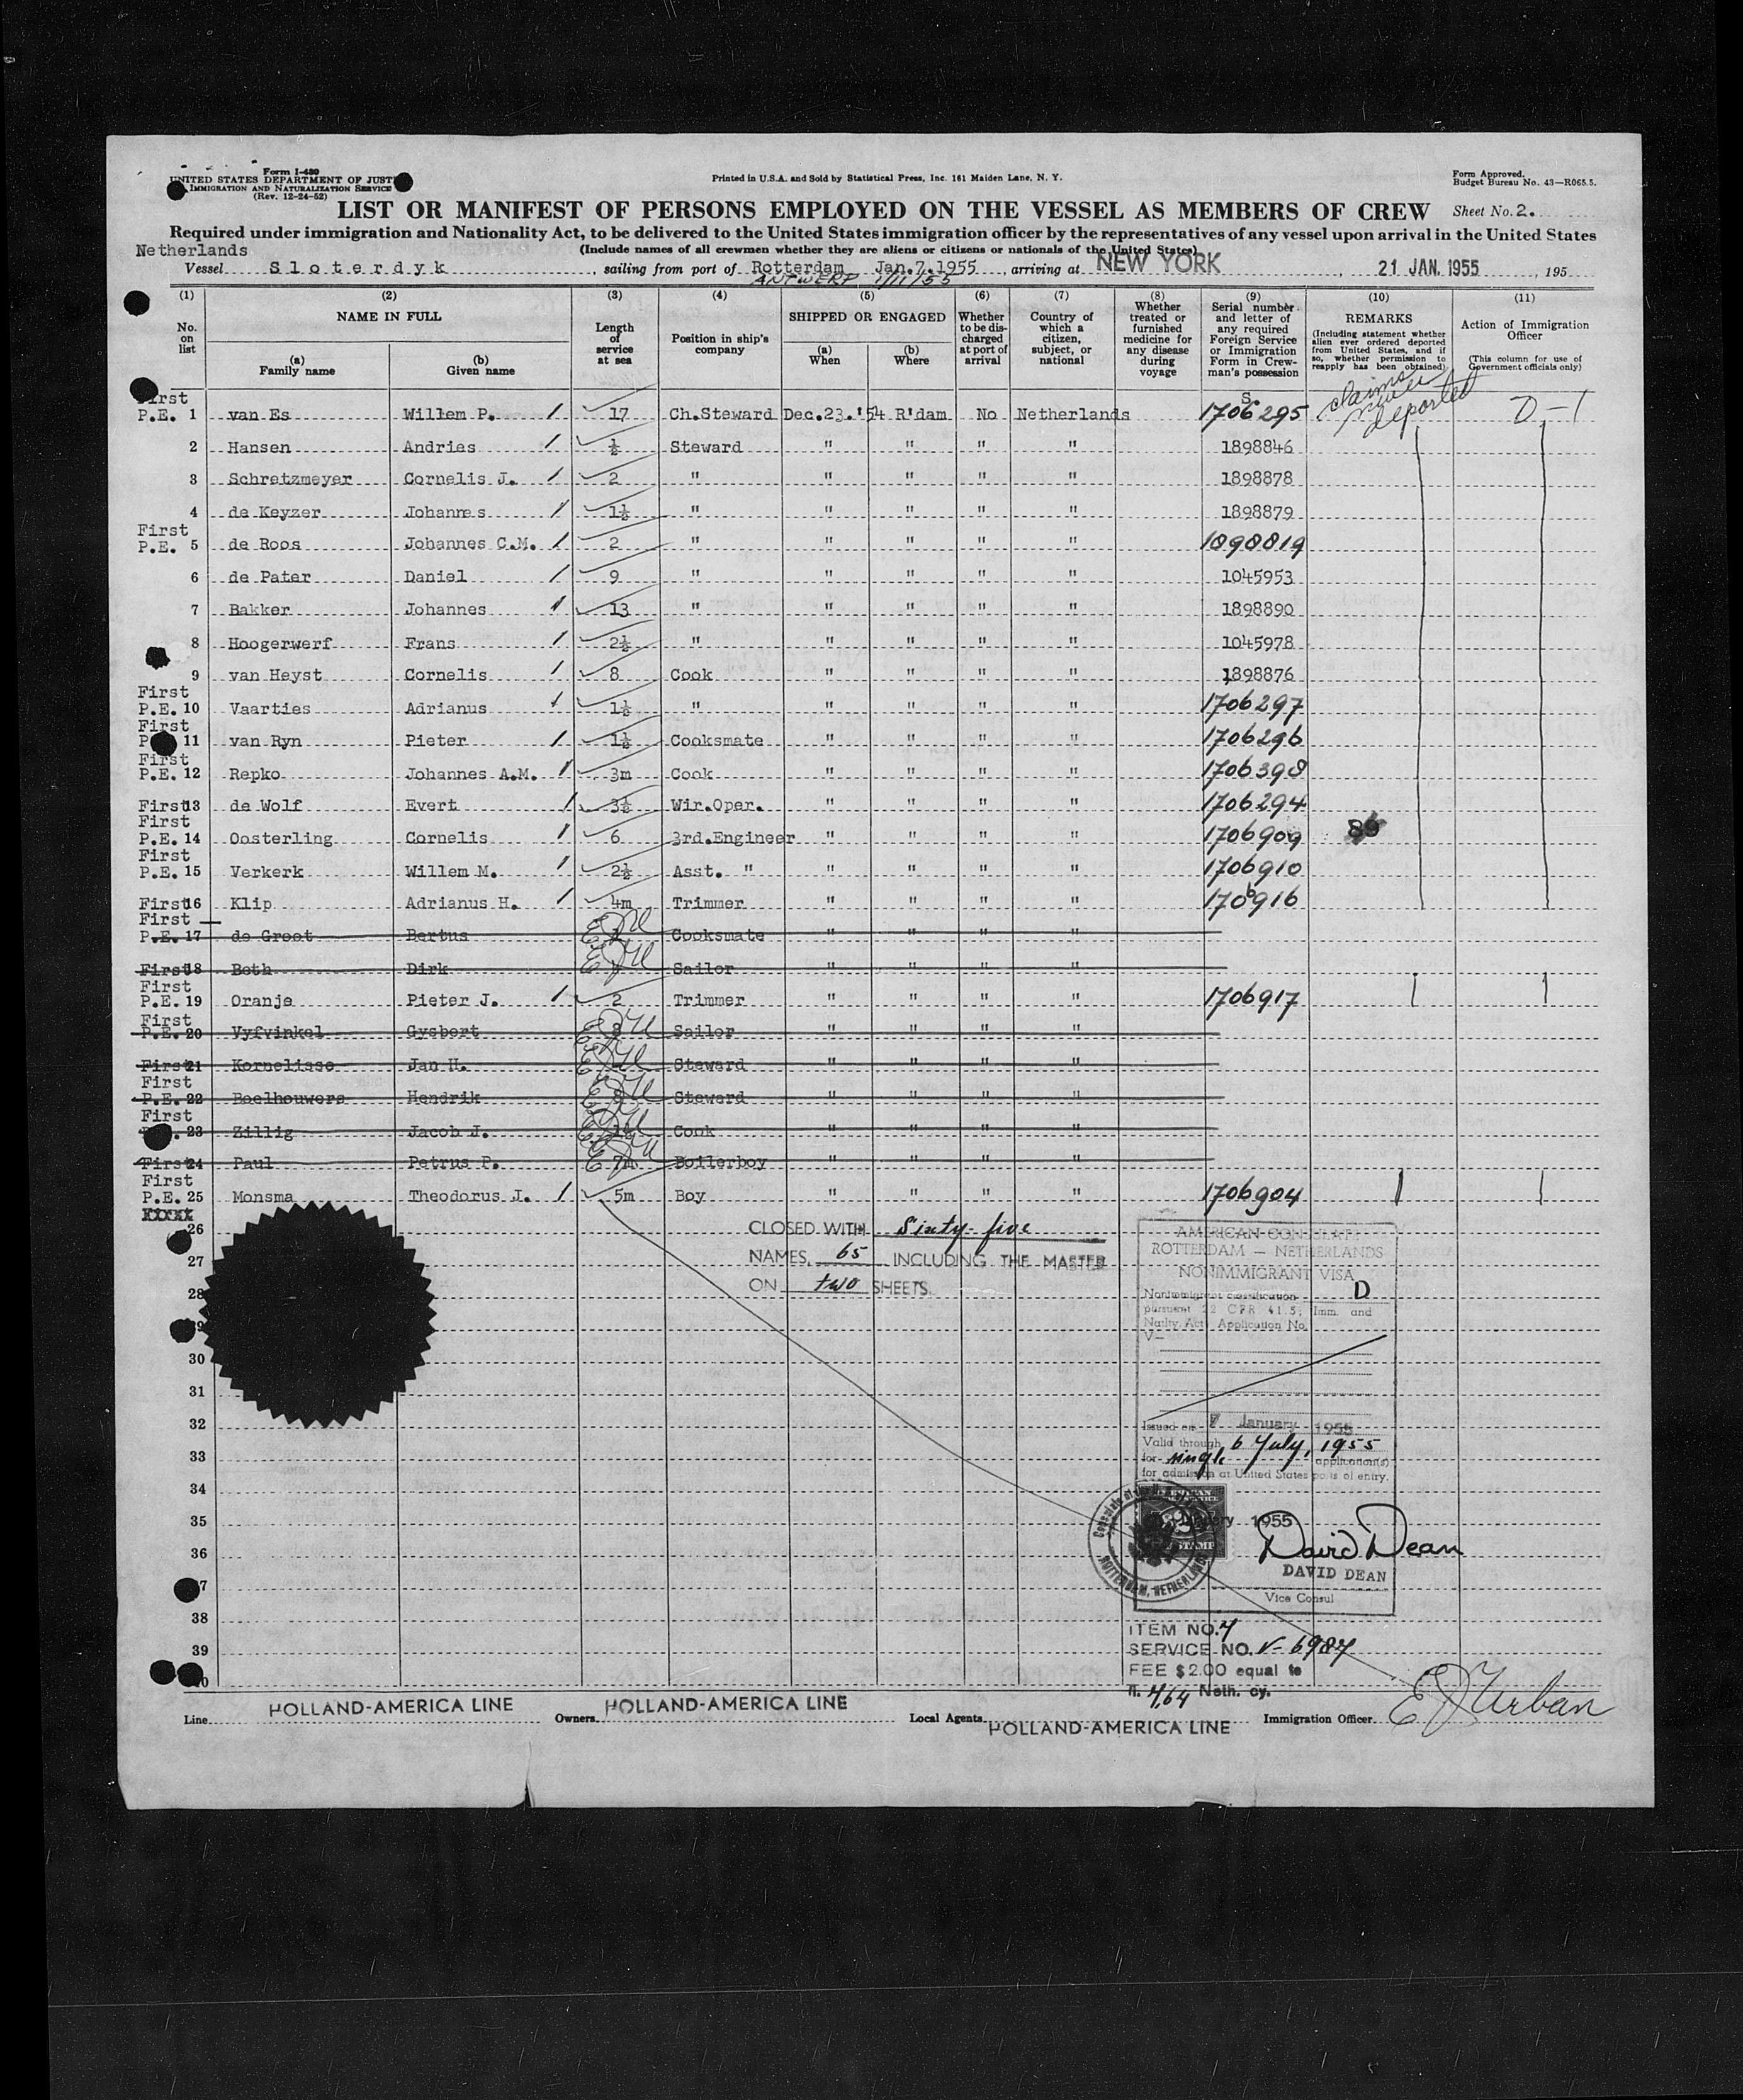 Form I-480
UNITED STATES DEPARTMENT OF JUST
IMMIGRATION AND NATURALIZATION SERVICE
(Rev. 12-24-52)
Printed in U.S.A. and Sold by Statistical Press, Inc. 161 Maiden Lane, N. Y.
Form Approved.
Budget Bureau No. 43—R065.5.
LIST OR MANIFEST OF PERSONS EMPLOYED ON THE VESSEL AS MEMBERS OF CREW Sheet No. 2.
Required under immigration and Nationality Act, to be delivered to the United States immigration officer by the representatives of any vessel upon arrival in the United States
Netherlands (Include names of all crewmen whether they are aliens or citizens or nationals of the United States)
Vessel Sloterdyk, sailing from port of Rotterdam Jan.7.1955, arriving at NEW YORK, 21 JAN. 1955, 195
ANTWERP 1/11/55
(1) (2) (3) (4) (5) (6) (7) (8) (9) (10) (11)
No. on list
NAME IN FULL
(a) Family name
(b) Given name
Length of service at sea
Position in ship's company
SHIPPED OR ENGAGED
(a) When
(b) Where
Whether to be discharged at port of arrival
Country of which a citizen, subject, or national
Whether treated or furnished medicine for any disease during voyage
Serial number and letter of any required Foreign Service or Immigration Form in Crewman's possession
REMARKS
(Including statement whether alien ever ordered deported from United States, and if so, whether permission to reapply has been obtained)
Action of Immigration Officer
(This column for use of Government officials only)
First S. claims never deported
P.E. 1 van Es Willem P. 17 Ch.Steward Dec.23.'54 R'dam No Netherlands 1706295 D-1
2 Hansen Andries ½ Steward " " " " 1898846
3 Schretzmeyer Cornelis J. 2 " " " " " 1898878
4 de Keyzer Johannes 1½ " " " " " 1898879
First
P.E. 5 de Roos Johannes C.M. 2 " " " " " 1898819
6 de Pater Daniel 9 " " " " " 1045953
7 Bakker Johannes 13 " " " " " 1898890
8 Hoogerwerf Frans 2½ " " " " " 1045978
9 van Heyst Cornelis 8 Cook " " " " 1898876
First
P.E. 10 Vaarties Adrianus 1½ " " " " " 1706297
First
P 11 van Ryn Pieter 1½ Cooksmate " " " " 1706296
First
P.E. 12 Repko Johannes A.M. 3m Cook " " " " 1706398
First 13 de Wolf Evert 3½ Wir.Oper. " " " " 1706294
First
P.E. 14 Oosterling Cornelis 6 3rd.Engineer " " " " 1706909
First
P.E. 15 Verkerk Willem M. 2½ Asst. " " " " " 1706910
First 16 Klip Adrianus H. 4m Trimmer " " " " 1706916
First
P.E. 17 de Groot Bertus EJU Cooksmate " " " "
First 18 Beth Dirk EJU Sailor " " " "
First
P.E. 19 Oranje Pieter J. 2 Trimmer " " " " 1706917
First
P.E. 20 Vyfvinkel Gysbert EJU Sailor " " " "
First 21 Kornelisse Jan H. EJU Steward " " " "
First
P.E. 22 Boelhouwers Hendrik EJU Steward " " " "
First
. 23 Zillig Jacob J. 1½ EJU Cook " " " "
First 24 Paul Petrus P. 7m EJU Boilerboy " " " "
First
P.E. 25 Monsma Theodorus J. 5m Boy " " " " 1706904
26
27
28
29
30
31
32
33
34
35
36
37
38
39
40
CLOSED WITH Sixty-five
NAMES, 65 INCLUDING THE MASTER
ON two SHEETS.
AMERICAN CONSULATE
ROTTERDAM — NETHERLANDS
NONIMMIGRANT VISA
Nonimmigrant classification D
pursuant 22 CFR 41.5; Imm. and
Natlty. Act. Application No.
V—
Issued on 7 January 1955
Valid through 6 July, 1955
for single application(s)
for admission at United States ports of entry.
1955
ROTTERDAM, NETHERLANDS
STAMP
David Dean
DAVID DEAN
Vice Consul
ITEM NO. 7
SERVICE NO. V-6987
FEE $2.00 equal to
fl. 7,64 Neth. cy.
Line HOLLAND-AMERICA LINE Owners HOLLAND-AMERICA LINE Local Agents HOLLAND-AMERICA LINE Immigration Officer EJUrban